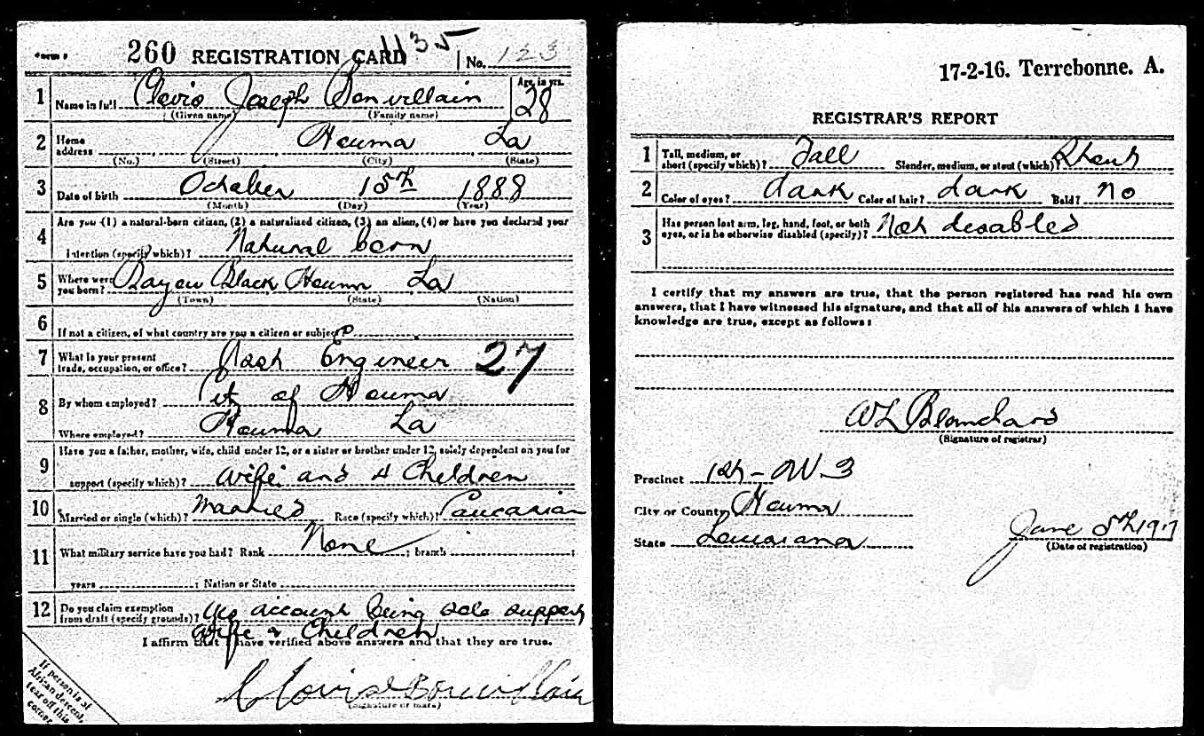 260 REGISTRATION CARD 1135 No. 123
1 Name in full Clovis Joseph Bonvillain Age, in yrs. 28
(Given name) (Family name)
2 Home address Houma La
(No.) (Street) (City) (State)
3 Date of birth October 15th 1888
(Month) (Day) (Year)
4 Are you (1) a natural-born citizen, (2) a naturalized citizen, (3) an alien, (4) or have you declared your
intention (specify which)? Natural born
5 Where were you born? Bayou Black Houma La
(Town) (State) (Nation)
6 If not a citizen, of what country are you a citizen or subject?
7 What is your present trade, occupation, or office? Engineer 27
8 By whom employed? of Houma
Where employed? Houma La
9 Have you a father, mother, wife, child under 12, or a sister or brother under 12, solely dependent on you for
support (specify which)? Wife and 4 Children
10 Married or single (which)? Married Race (specify which)? Caucasian
11 What military service have you had? Rank None ; branch ;
years ; Nation or State
12 Do you claim exemption from draft (specify grounds)? Yes account being sole support
wife & Children
I affirm that I have verified above answers and that they are true.
Clovis J Bonvillain
(Signature or mark)
If person is of
African descent,
tear off this
corner.
17-2-16. Terrebonne. A.
REGISTRAR'S REPORT
1 Tall, medium, or short (specify which)? Tall Slender, medium, or stout (which)?
2 Color of eyes? dark Color of hair? dark Bald? No
3 Has person lost arm, leg, hand, foot, or both
eyes, or is he otherwise disabled (specify)? Not disabled
I certify that my answers are true, that the person registered has read his own
answers, that I have witnessed his signature, and that all of his answers of which I have
knowledge are true, except as follows:
WL Blanchard
(Signature of registrar)
Precinct 1st - W 3
City or County Houma
State Louisiana
June 5th 1917
(Date of registration)